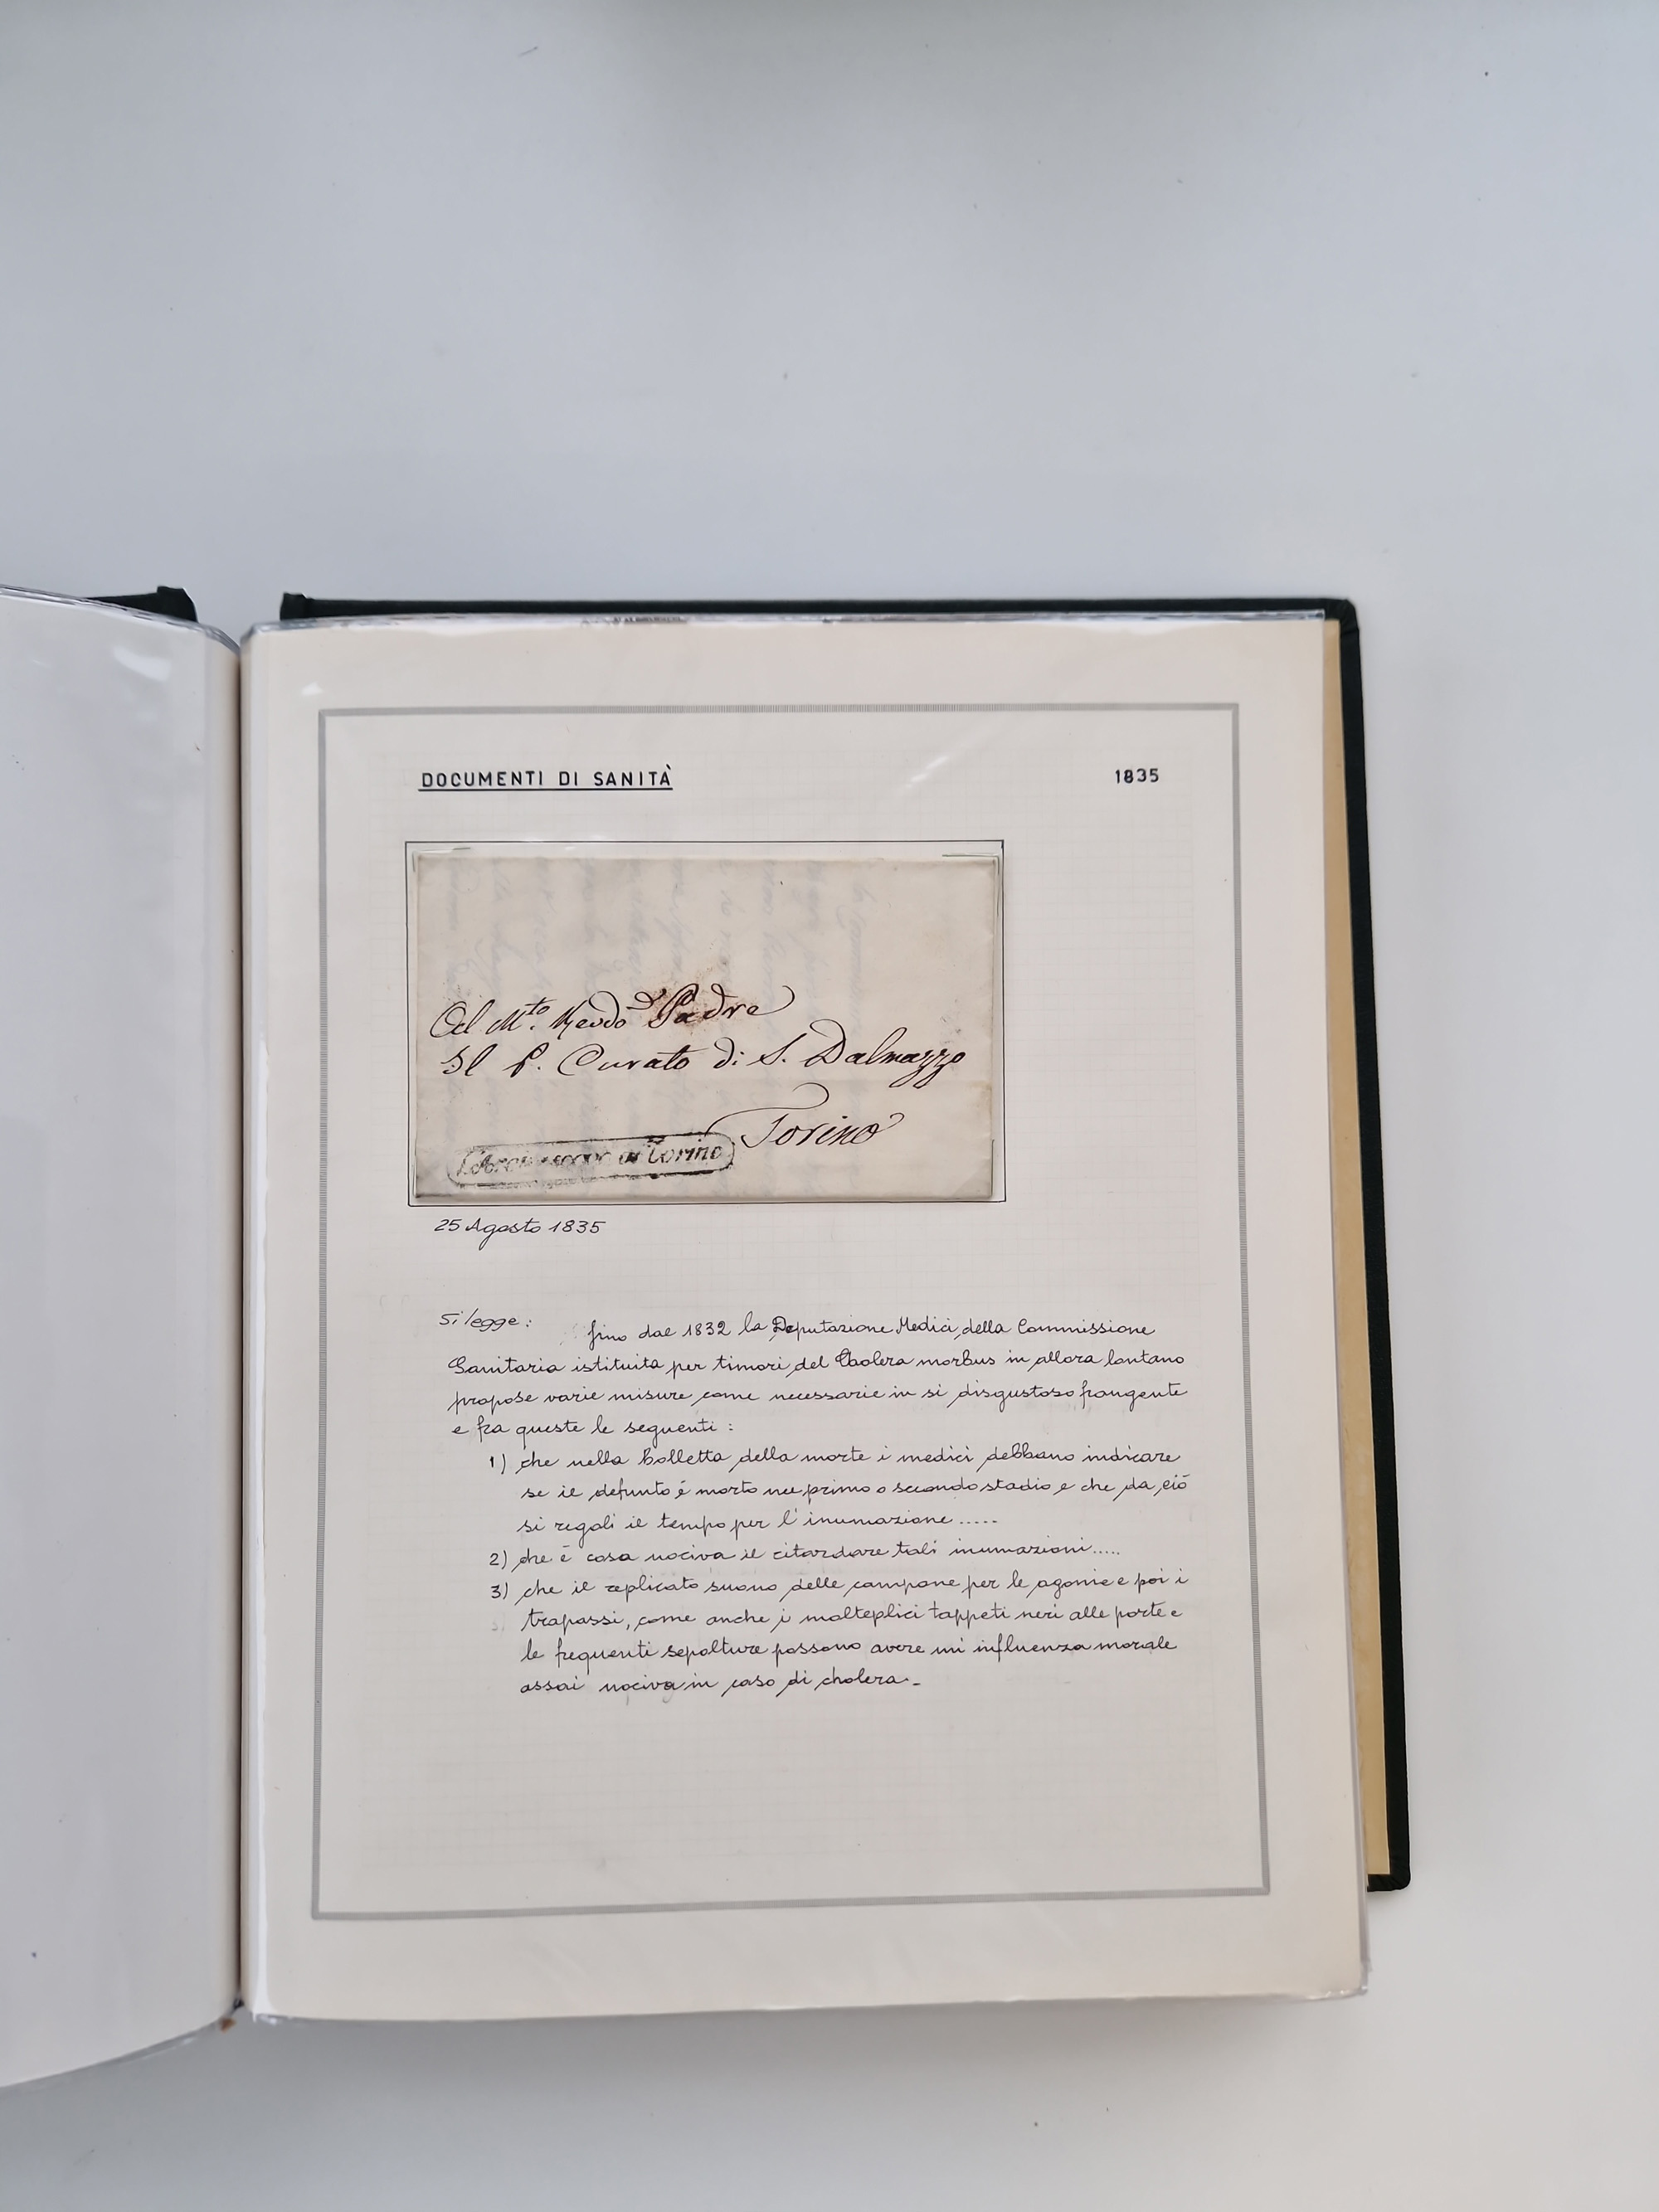 DOCUMENTI DI SANITÀ
1835
Al M.to Revdo Padre
Il P. Curato di S. Dalmazzo
Torino
di Torino
25 Agosto 1835
Si legge:
fino dal 1832 la Deputazione Medici della Commissione
Sanitaria istituita per timori del Cholera morbus in allora lontano
propose varie misure come necessarie in si disgustoso frangente
e fra queste le seguenti:
1) che nella bolletta della morte i medici debbano indicare
se il defunto é morto nel primo o secondo stadio e che da ció
si regoli il tempo per l'inumazione.....
2) che é cosa nociva il ritardare tali inumazioni.....
3) che il replicato suono delle campane per le agonie e poi i
trapassi, come anche i molteplici tappeti neri alle porte e
le frequenti sepolture possono avere un'influenza morale
assai nociva in caso di cholera.-